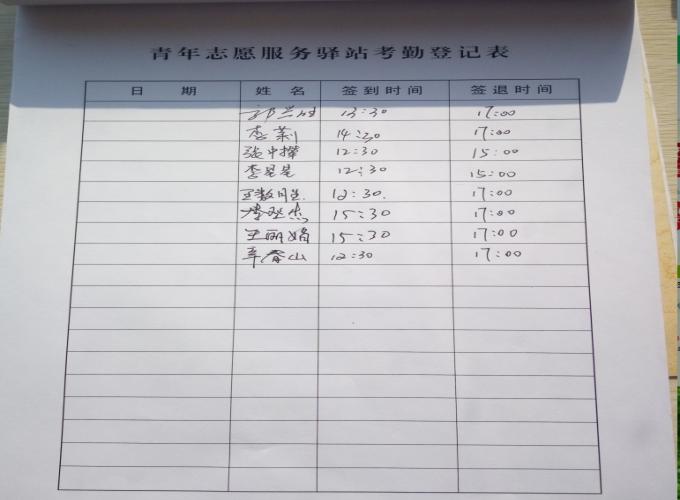 青年志愿服务驿站考勤登记表
日 期 姓 名 签到时间 签退时间
13:30 17:00
李莉 14:30 17:00
张中操 12:30 15:00
李星星 12:30 15:00
12:30. 17:00
李 杰 15:30 17:00
王丽娟 15:30 17:00
辛春山 12:30 17:00